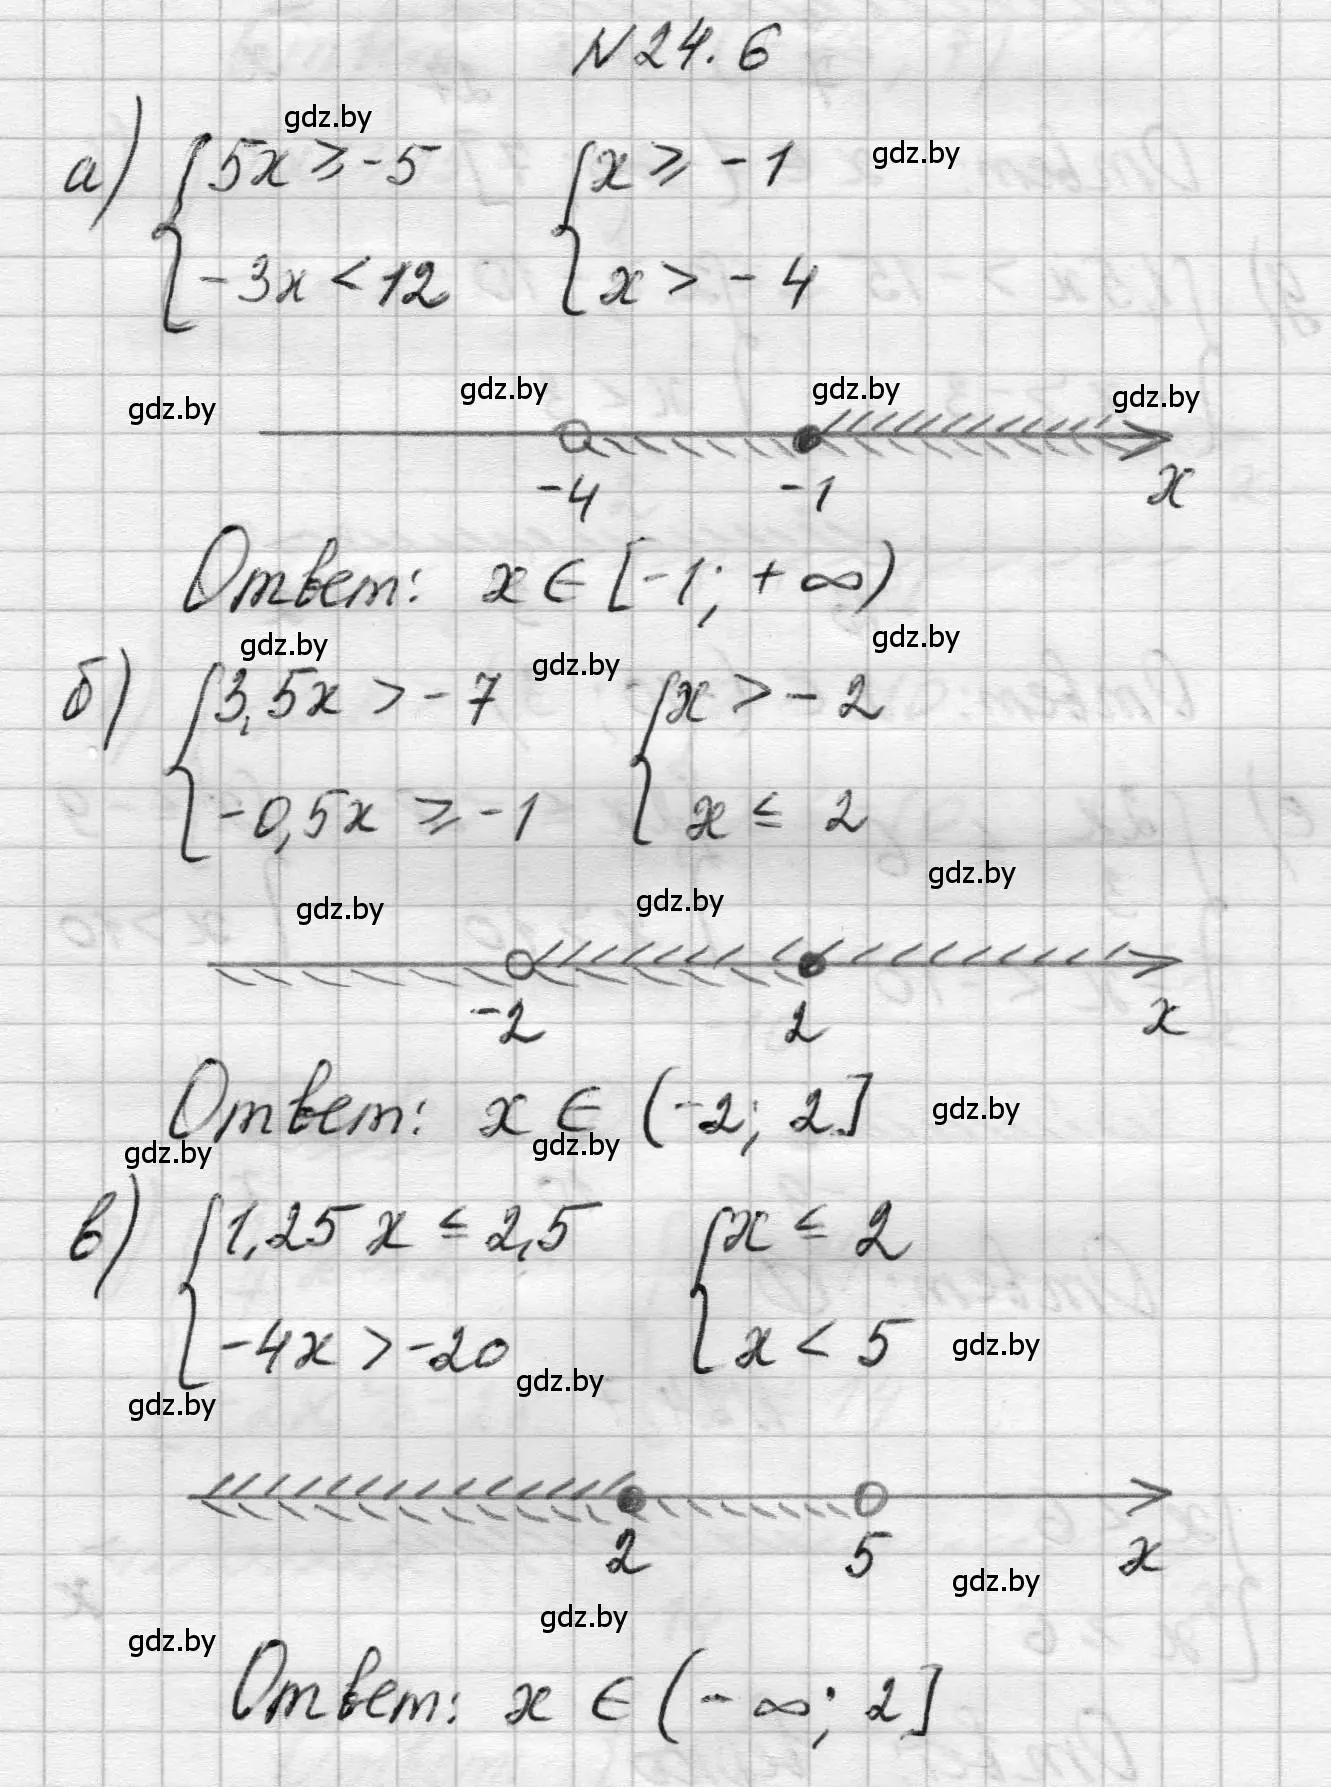 N 24.6
gdz.by
а) { 5x ≥ -5 { x ≥ -1 gdz.by
-3x < 12 x > -4
gdz.by gdz.by gdz.by gdz.by
-4 -1 x
Ответ: x ∈ [-1; +∞)
gdz.by gdz.by gdz.by
б) { 3,5x > -7 { x > -2
-0,5x ≥ -1 x ≤ 2
gdz.by gdz.by gdz.by
-2 2 x
Ответ: x ∈ (-2; 2] gdz.by
gdz.by gdz.by
в) { 1,25x ≤ 2,5 { x ≤ 2
-4x > -20 x < 5 gdz.by
gdz.by gdz.by
2 5 x
gdz.by gdz.by gdz.by
Ответ: x ∈ (-∞; 2]